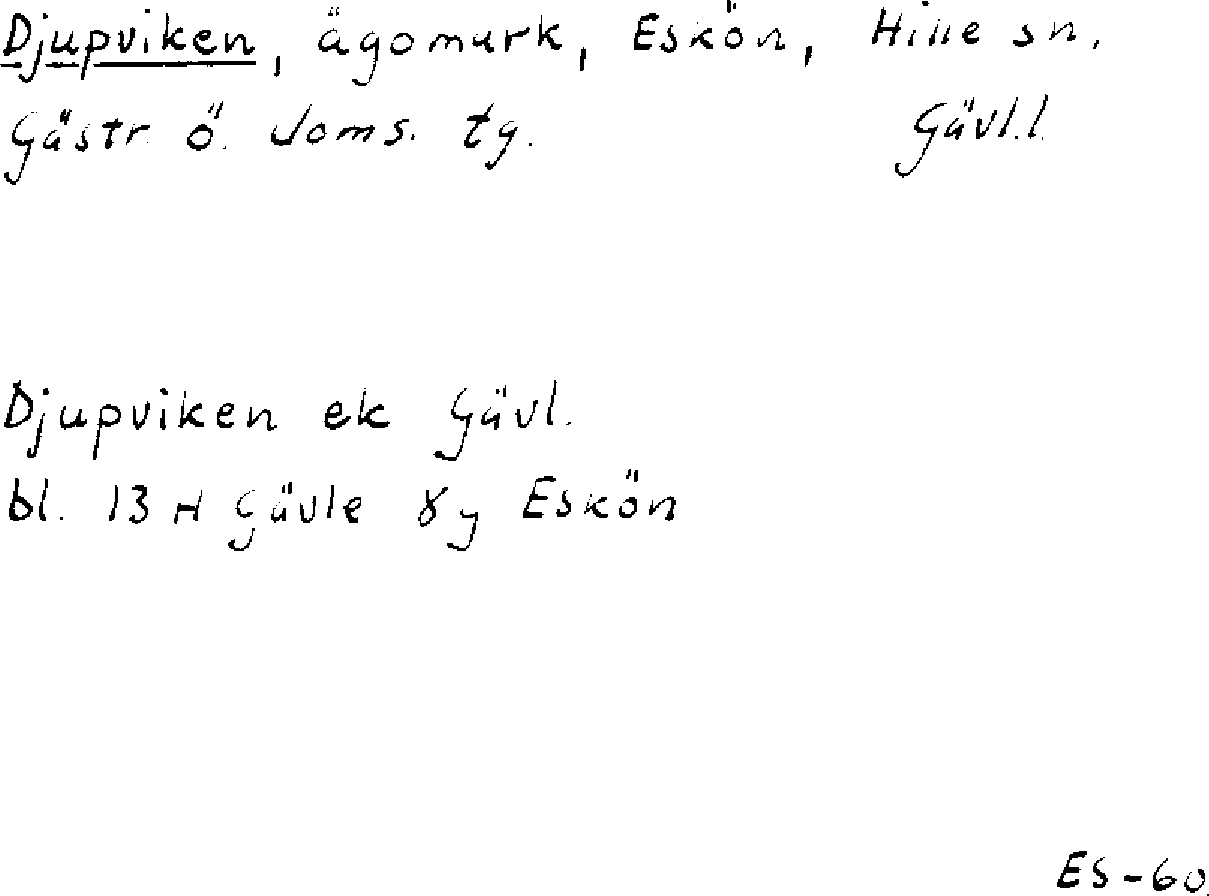 Djupviken, ägomark, Eskön, Hille sn,
Gästr. ö. doms. tg. Gävl.l.
Djupviken ek Gävl.
bl. 13 H Gävle Eskön
ES-60